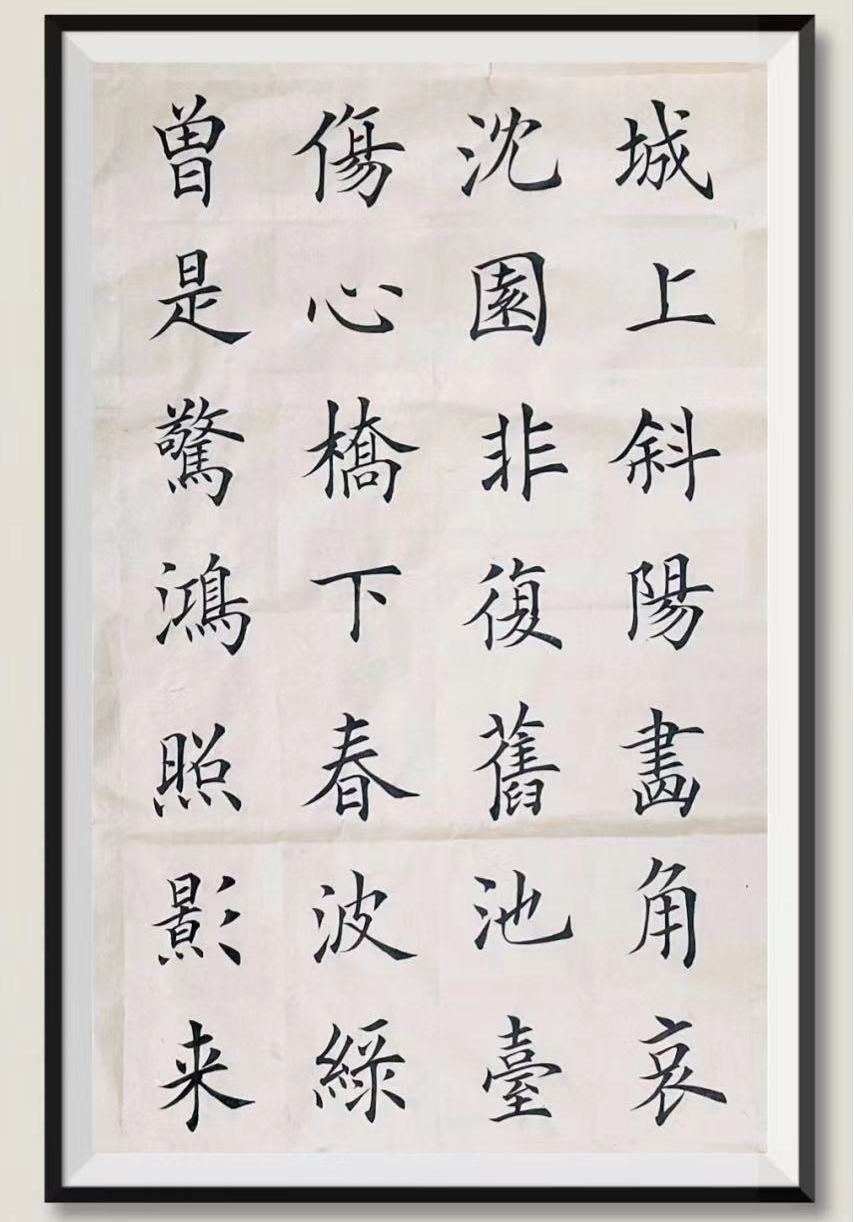 城上斜陽畫角哀
沈園非復舊池臺
傷心橋下春波綠
曾是驚鴻照影来